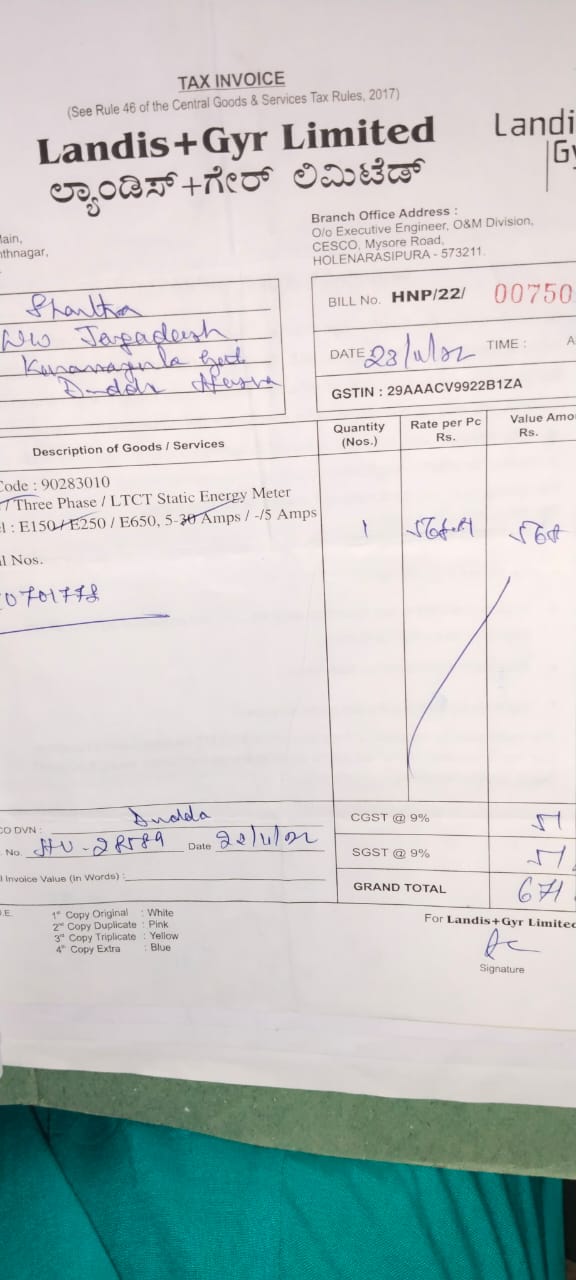 TAX INVOICE
(See Rule 46 of the Central Goods & Services Tax Rules, 2017)
Landis+Gyr Limited
Landi
Gy
ಲ್ಯಾಂಡಿಸ್+ಗೇರ್ ಲಿಮಿಟೆಡ್
Main,
nthnagar,
Branch Office Address :
O/o Executive Engineer, O&M Division,
CESCO, Mysore Road,
HOLENARASIPURA - 573211.
W/o Jagadeesh
Dudda
BILL No. HNP/22/ 00750
DATE TIME : A
GSTIN : 29AAACV9922B1ZA
Description of Goods / Services
Quantity (Nos.)
Rate per Pc Rs.
Value Amo
Rs.
Code : 90283010
/ Three Phase / LTCT Static Energy Meter
el : E150 / E250 / E650, 5-30 Amps / -/5 Amps
1 568
l Nos.
0701778
CO DVN : Dudda
. No. 28589 Date
l Invoice Value (In Words) :
CGST @ 9% 51
SGST @ 9% 51
GRAND TOTAL 671
O.E.
1st Copy Original : White
2nd Copy Duplicate : Pink
3rd Copy Triplicate : Yellow
4th Copy Extra : Blue
For Landis+Gyr Limited
Signature